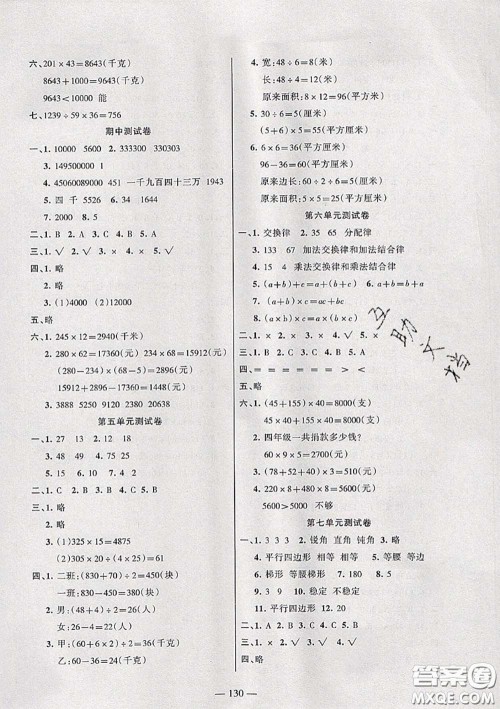 六、201×43=8643(千克)
8643+1000=9643(千克)
9643<10000 能
七、1239÷59×36=756
期中测试卷
一、1. 10000 5600 2. 333300 330303
3. 149500000 1
4. 45060089000 451 一千九百四十三万 1943
5. 四 千 5526 6. 8 13 4
7. 2000 8. 110
二、1. B 2. A 3. C 4. B
三、1. √ 2. √ 3. × 4. ×
四、1. 略
2. 略
3. (1)4000 (2)12000
五、略
六、1. 245×12=2940(千米)
2. 280×62=17360(元) 234×68=15912(元)
280×62=17360(元) 234×68=15912(元)
15912+17360>32000 够
3. 3888 5250 8910 10530
第五单元测试卷
一、1. 27 13 2. 12 18
3. 48 49.5 4. 25 25
二、1. C 2. B 3. B 4. C
三、1. 略
2. 略
3. (1)325×15=4875
(2)(325-300)×15=375
四、1. 二班:(830+70)÷2=450(块)
一班:(830-70)÷2=380(块)
2. 男:(48+4)÷2=26(人)
女:26-4=22(人)
3. 甲:(60+6×2)÷2=36(千克)
乙:60-36=24(千克)
4. 宽:48÷6=8(米)
长:48÷4=12(米)
原来面积:8×12=96(平方米)
5. 30÷6=5(米)
(5+6)×5=55(平方厘米)
6. 6×6=36(平方厘米)
96-36=60(平方厘米)
原来边长:60÷2÷6=5(厘米)
原来面积:5×5=25(平方厘米)
第六单元测试卷
一、1. 交换律
2. 27 73 56 65 分配律
3. 133 67 加法交换律和加法结合律
4. 乘法交换律和乘法结合律
5. (a+b)+c=a+(b+c) 6. a+b=b+a
7. (a+b)×c=ac+bc
8. (a×b)×c=a×(b×c)
二、1. × 2. × 3. × 4. √ 5. ×
三、1. B 2. C 3. B 4. C
四、= = = = = > <
五、略
六、1. (45+155)×40=8000(支)
45×40+155×40=8000(支)
2. 四年级一共捐款多少钱?
60×9×5=2700(元)
3. (78+52+40)×3=510(元)
4. 220×8+480×8=5600(元)
5600>5000 不够
第七单元测试卷
一、1. 3 2. 1 3 3. 锐角 直角 钝角 4. ×
4. 平行四边形 相等 相等 5. 等腰 等边
6. 梯形 等腰梯形 7. 60 8. 20
9. 36 10. 稳定 不稳定
11. 平行四边形 12. 20
二、1. A 2. B 3. B 4. B
三、1. √ 2. × 3. × 4. √ 5. √
四、略
— 130 —
互助文档
答案圈
MXQE.COM